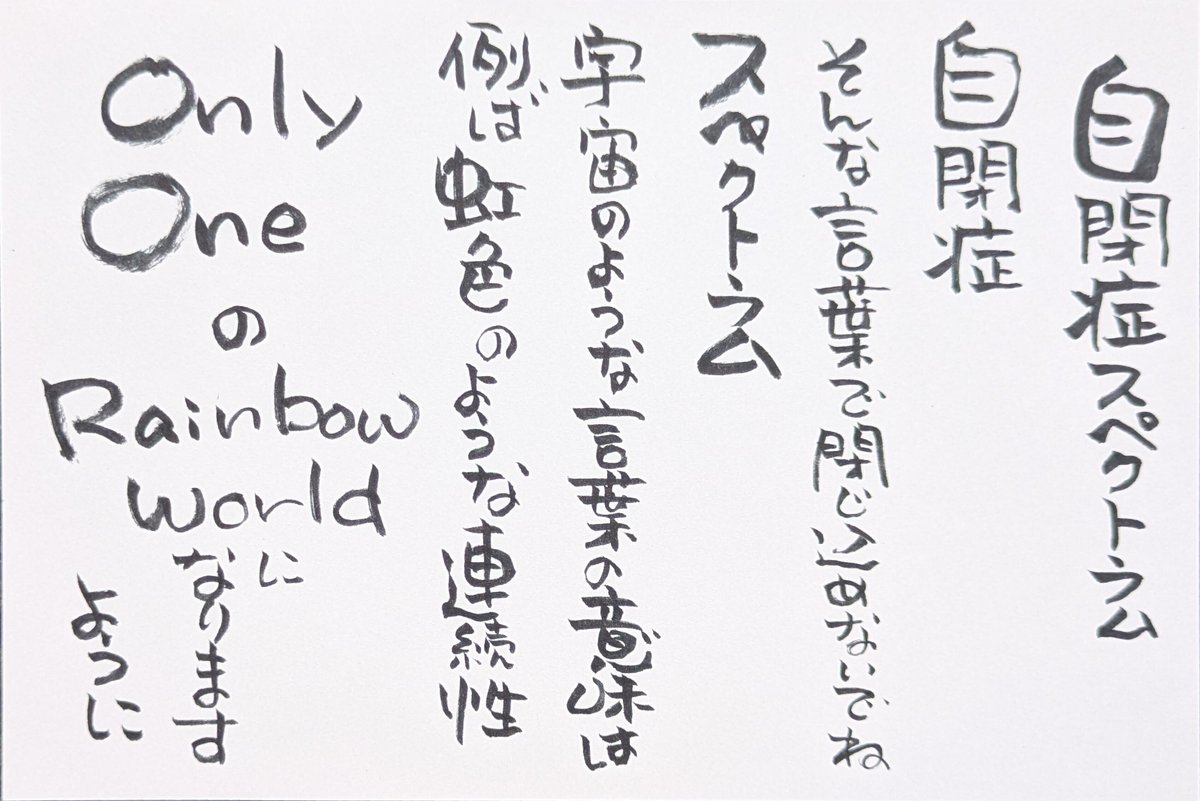 自閉症スペクトラム
自閉症
そんな言葉で閉じ込めないでね
スペクトラム
宇宙のような言葉の意味は
例ば虹色のような連続性
Only
One
の
Rainbow
world
に
なります
ように